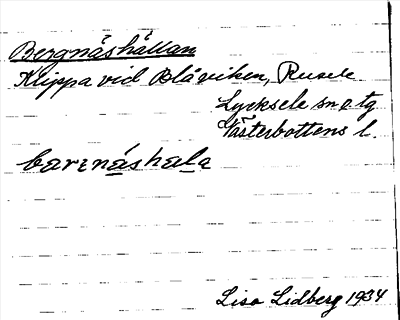 Bergnäshällan
Klippa vid Blåviken, Rusele
Lycksele sn o tg
Västerbottens l.
Lisa Lidberg 1934